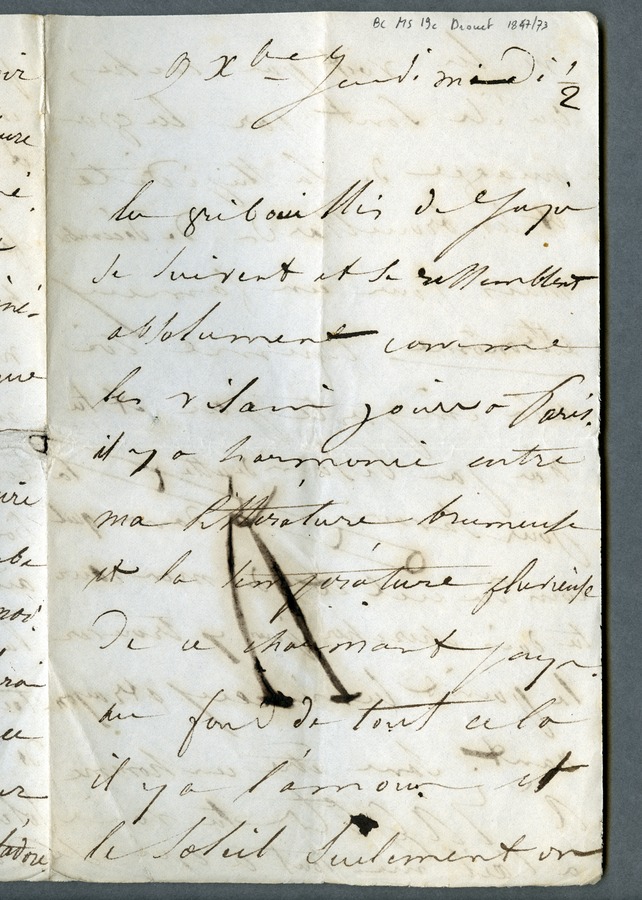 BC MS 19c Drouet 1847/73
9 Xbre Jeudi midi ½
les gribouillis de Juju
se suivent et se ressemblent
absolument comme
les vilains jours à Paris.
il y a harmonie entre
ma littérature brumeuse
et la température pluvieuse
de ce charmant pays.
au fond de tout cela
il y a l'amour et
le soleil seulement on
t'adore